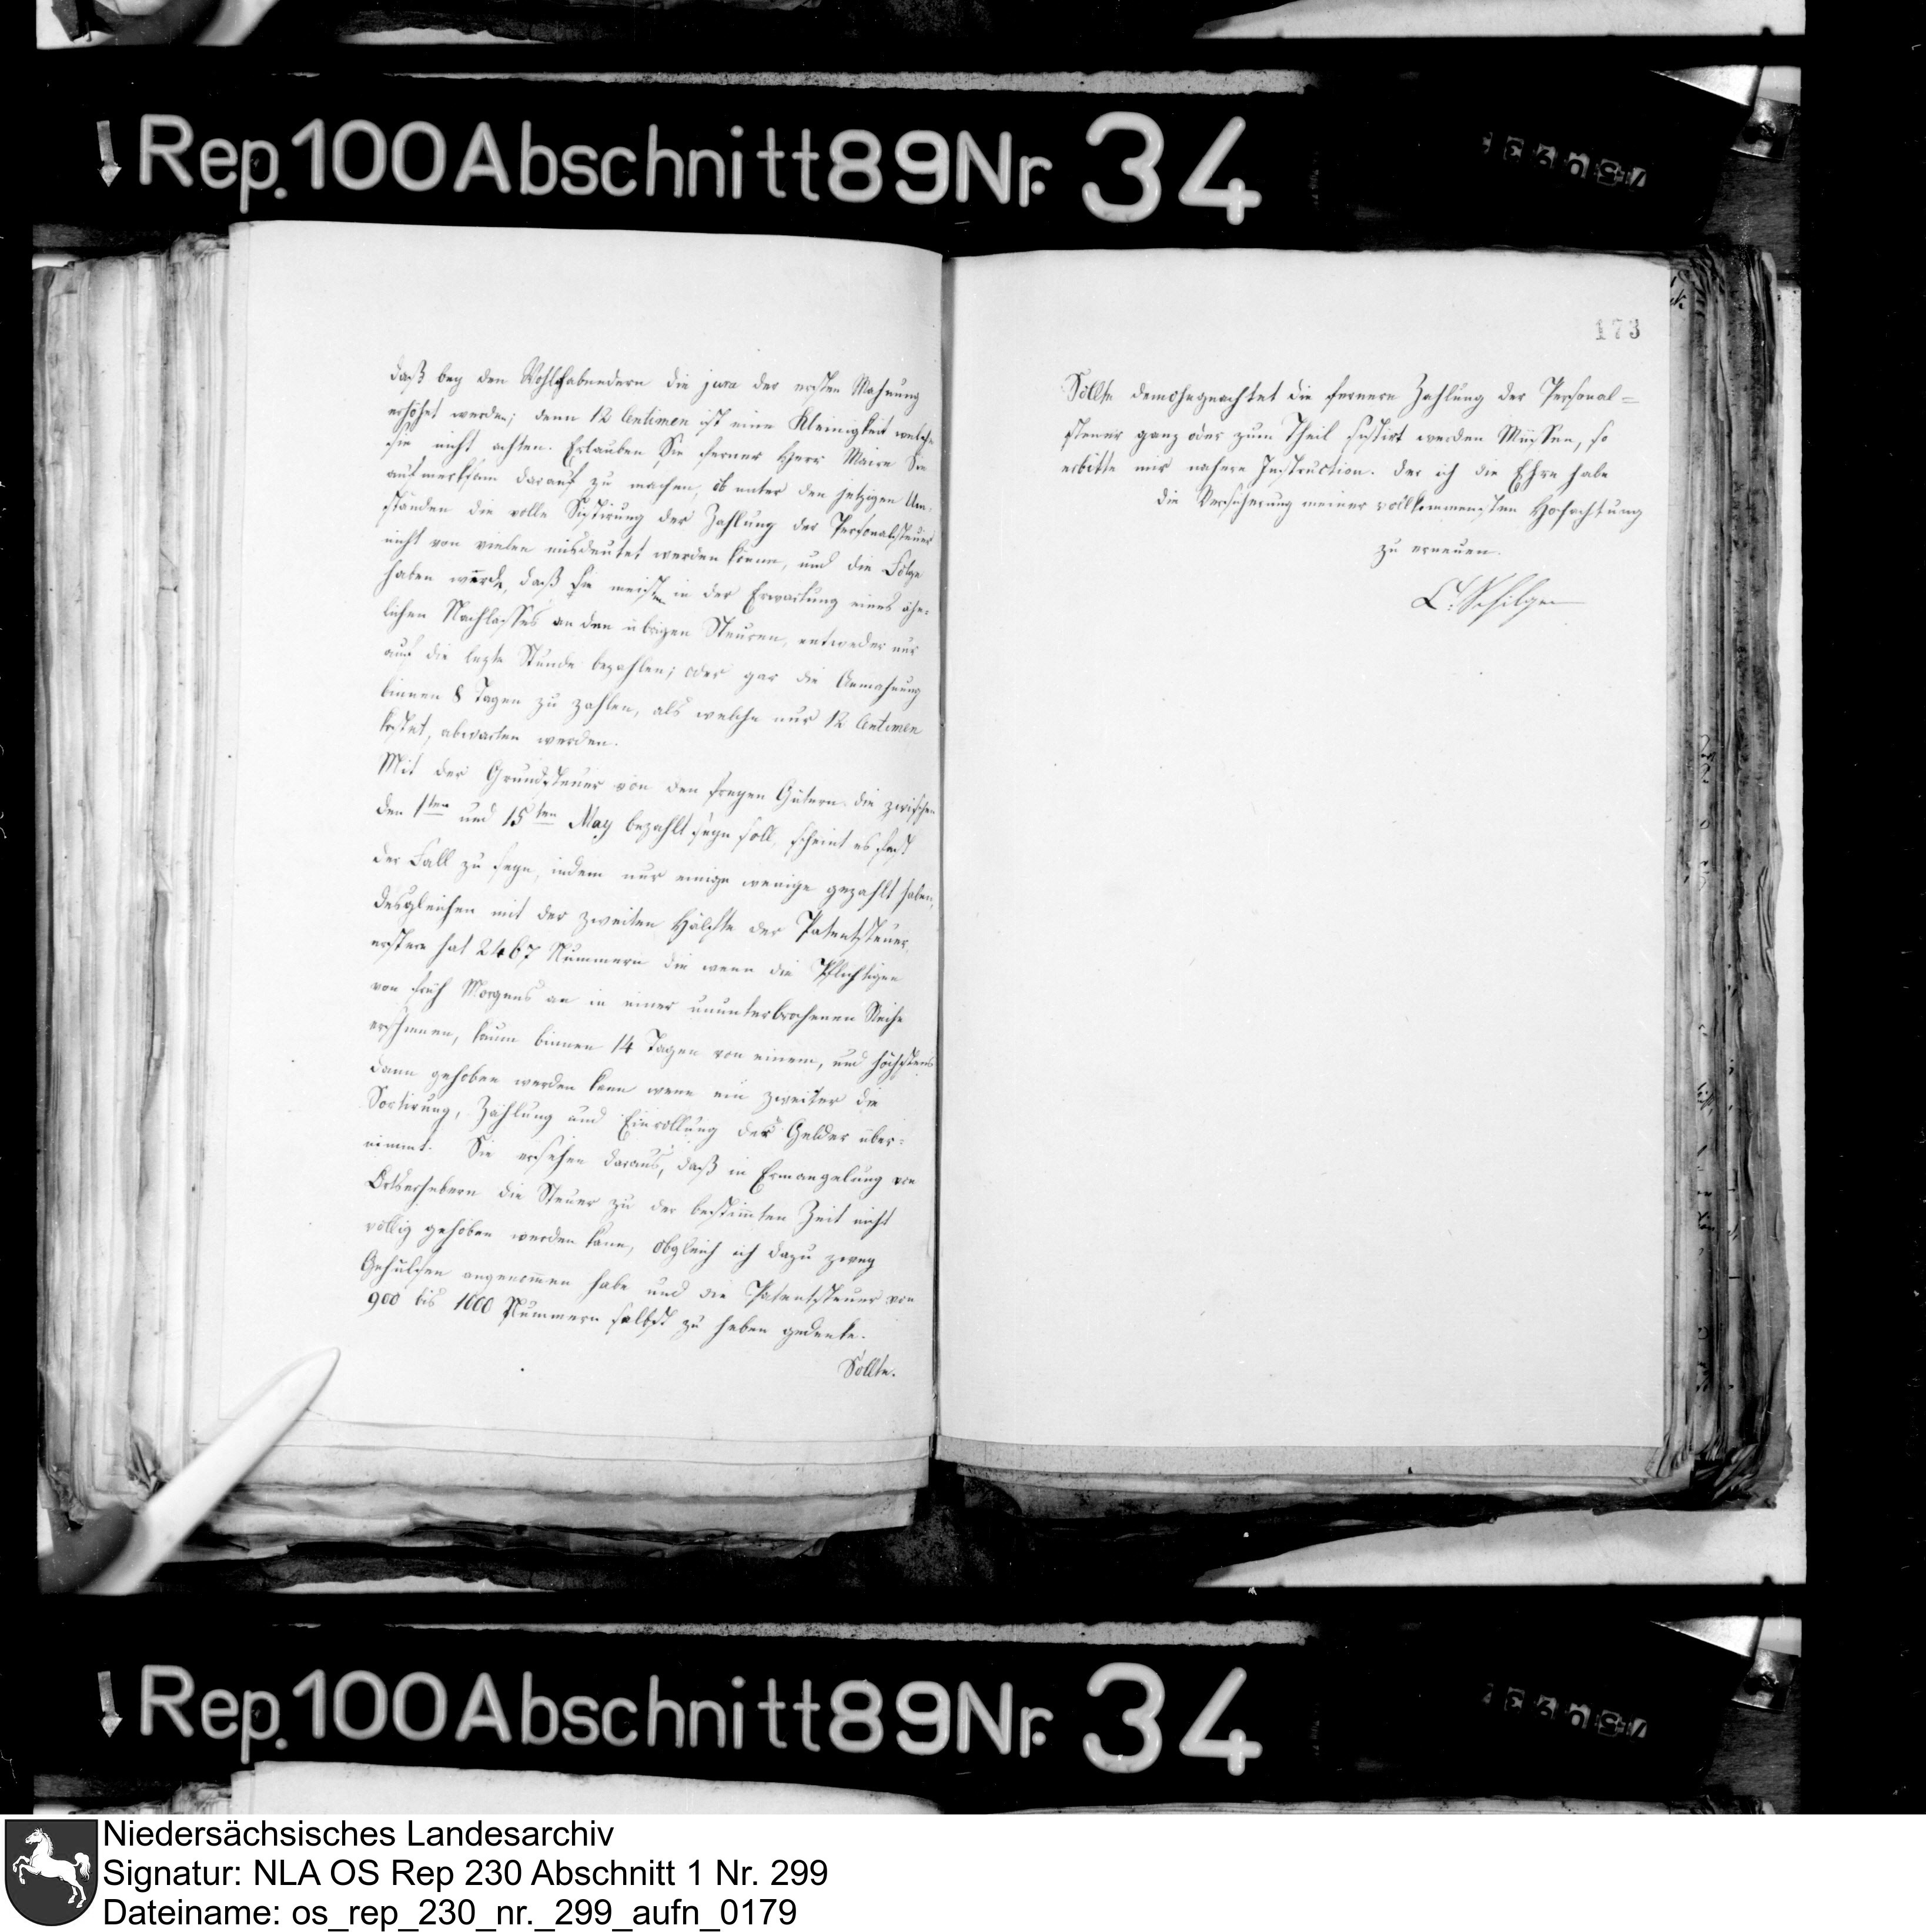 Rep. 100 Abschnitt 89 Nr. 34
daß bey den Wohlhabendern die jura der ersten Mahnung
erhöhet werden; denn 12 Centimen ist eine Kleinigkeit welche
sie nicht achten. Erlauben Sie ferner Herr Maire Sie
aufmerksam darauf zu machen, ob unter den jetzigen Um-
ständen die volle Sistirung der Zahlung der Personalsteuer
nicht von vielen misdeutet werden könne, und die Folge
haben werde, daß sie meisten in der Erwartung eines ähn-
lichen Nachlasses an den übrigen Steuren, entweder nur
auf die lezte Stunde bezahlen; oder gar die Anmahnung
binnen 8 Tagen zu zahlen, als welche nur 12 Centimen
kostet, abwarten werden.
Mit der Grundsteuer von den freyen Gütern die zwischen
den 1ten und 15ten May bezahlt seyn soll, scheint es fast
der Fall zu seyn, indem nur einige wenige gezahlt haben,
desgleichen mit der zweiten Hälfte der Patentsteuer,
erstere hat 2467 Nummern die wenn die Pflichtigen
von früh Morgens an in einer ununterbrochenen Reihe
erschienen, kaum binnen 14 Tagen von einem, und höchstens
dann gehoben werden kann wenn ein zweiter die
Sortirung, Zählung und Einrollung der Gelder über-
nimmt. Sie ersehen daraus, daß in Ermangelung von
Ortserhebern die Steuer zu der bestimmten Zeit nicht
völlig gehoben werden kann, obgleich ich dazu zwey
Gehülfen angenommen habe und die Patentsteuer von
900 bis 1000 Nummern selbst zu heben gedenke.
Sollte.
173
Sollte demohngeachtet die fernere Zahlung der Personal=
steuer ganz oder zum Theil sistirt werden Müssen, so
erbitte mir nähere Instruction. der ich die Ehre habe
die Versicherung meiner vollkommensten Hochachtung
zu erneuen.
Schilgen
Rep. 100 Abschnitt 89 Nr. 34
Niedersächsisches Landesarchiv
Signatur: NLA OS Rep 230 Abschnitt 1 Nr. 299
Dateiname: os_rep_230_nr._299_aufn_0179